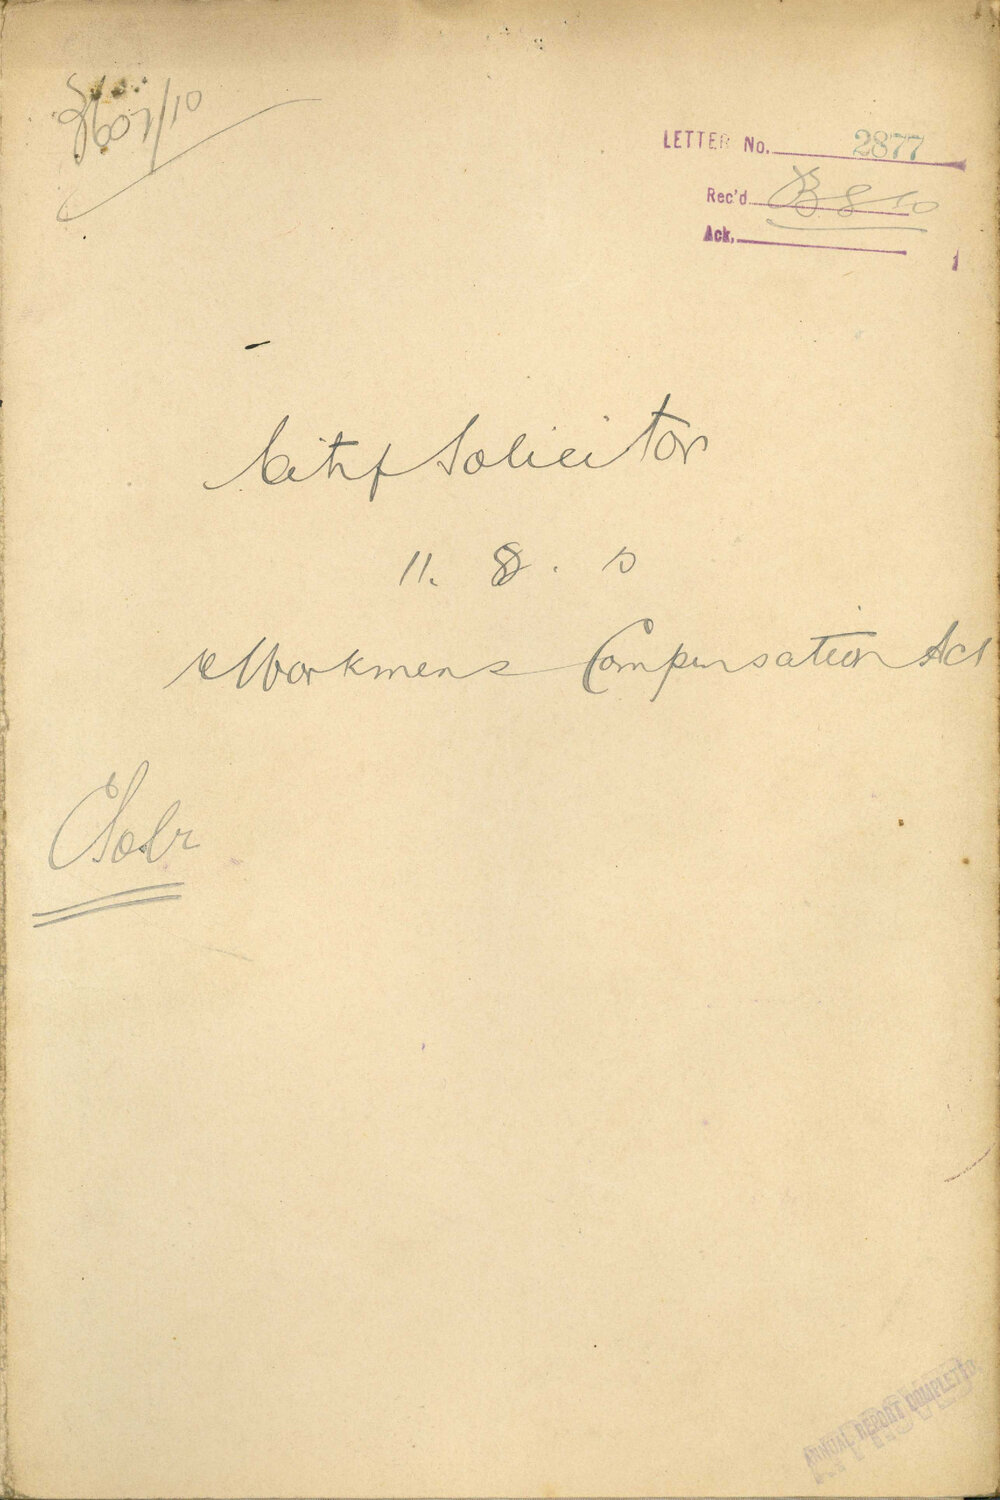 3607/10
LETTER No. 2877
Rec'd 13 8 10
Ack.
City Solicitor
11. 8. 10
Workmens Compensation Act
C Solr
ANNUAL REPORT COMPLETED